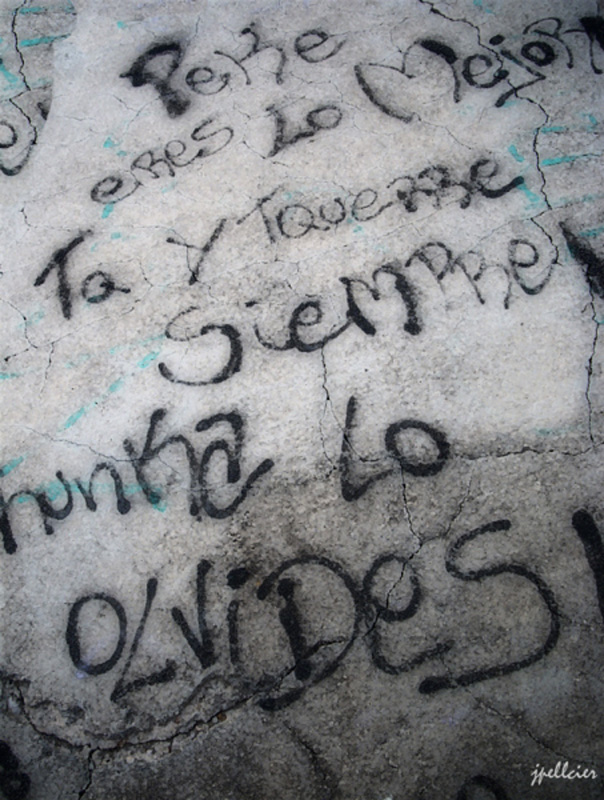 Peke
eres Lo Mejor
Ta Y Taquerre
Siempre
nunka Lo
OLViDeS!
jpellcier